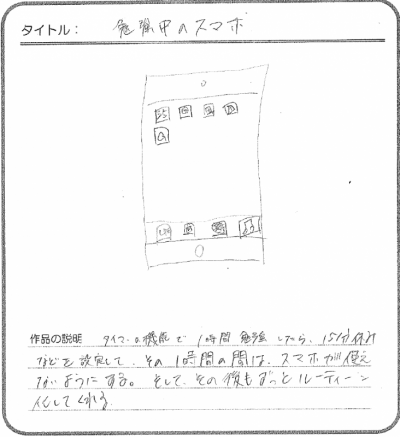 タイトル： 勉強中のスマホ
作品の説明 タイマーの機能で1時間勉強したら、15分休み
などを設定して、その1時間の間は、スマホが使え
ないようにする。そして、その後もずっとルーティーン
化してくれる